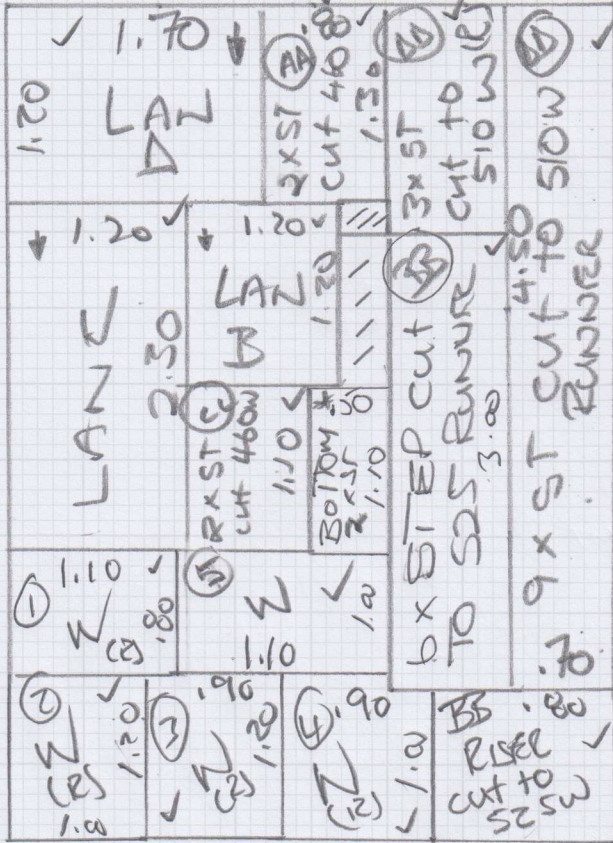 1.70
1.20
LAN
D
AA .80
2 x ST
cut 460
1.30
3 x ST
cut to
510 W (R)
1.20
LAN C
2.30
1.20
LAN
B
1.20
BB
6 x STEP CUT
TO 525 RUNNER
3.00
9 x ST cut to 510W
4.50
RUNNER
.70
C
2 x ST
cut 460W
1.10
BOTTOM * .50
2 x ST
1.10
1
1.10
W
(2)
.80
5
W
1.10
1.00
2
W
(R)
1.20
1.00
3
.90
W
(2)
1.20
4
.90
W
(12)
1.00
BB .80
RISER
cut to
525W